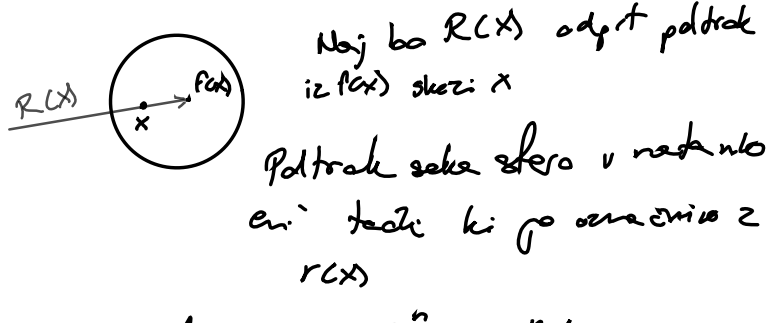 Naj bo R(X) odprt poltrak
iz f(x) skozi x
R(X) f(x)
x
Poltrak seka sfero v natanko
eni točki ki jo označimo z
r(x)